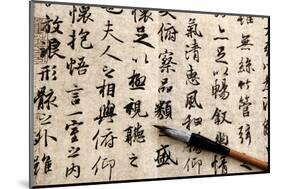 無絲竹管
足以暢叙幽
氣清惠風和暢
俯察品類之盛
懷足以極視聽之
也夫人之相與俯仰
懷抱悟言一室之內
放浪形骸之外雖